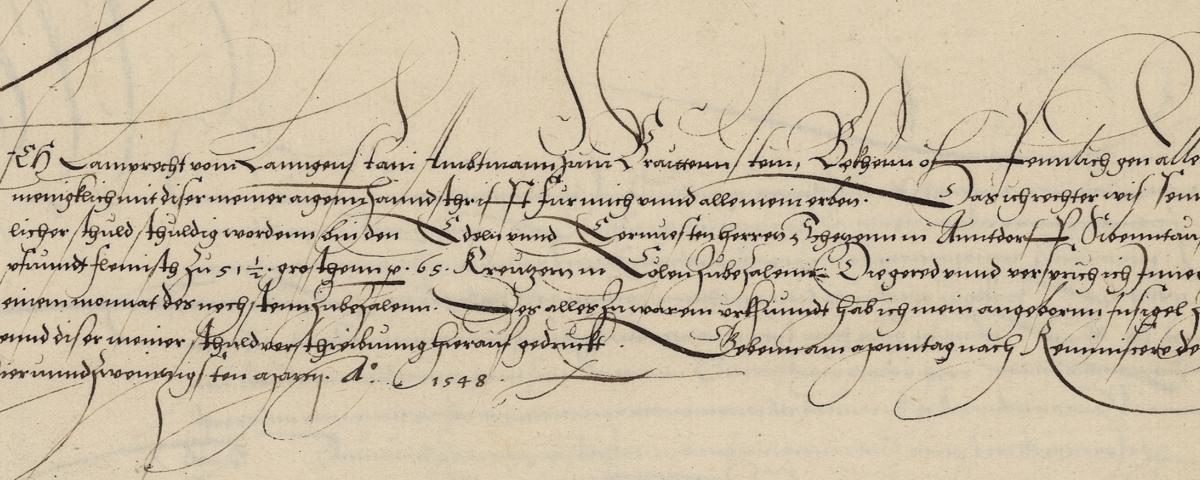 ICH Lamprecht vom Lanngenstain Ambtmann zum Brauttennstein, Bekhenn offennlich gen alle
menigklich mit diser meiner aigenn Hanndtschrifft fur mich vnnd alle mein erben. Das ich rechter wis
licher schuld schuldig wordenn bin den Edeln vnnd Ernuesten herren in Anntdorff, Sibenntau
pfundt flemisch zu 51 1/2 groschenn p. 65. Kreutzern in Golen zubezalenn. Die gered vnnd versprich ich Inner
einem monnat des nechstenn zubezalenn. Des alles zu warem vrkhunndt hab ich mein angeborn insigel
ennd diser meiner schuldverschreibung hierauf gedruckt. Gebenn am Monntag nach Reminiscere de
vierunndzwenntzigsten Marcy. A° 1548.